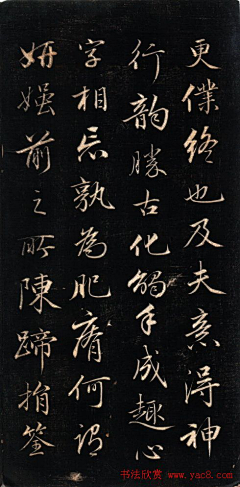 更仆终也及夫意得神
行韵胜古化触手成趣心
字相忘孰為肥瘠何謂
妍媸前之所陳蹄捐筌
书法欣赏
www.yac8.com